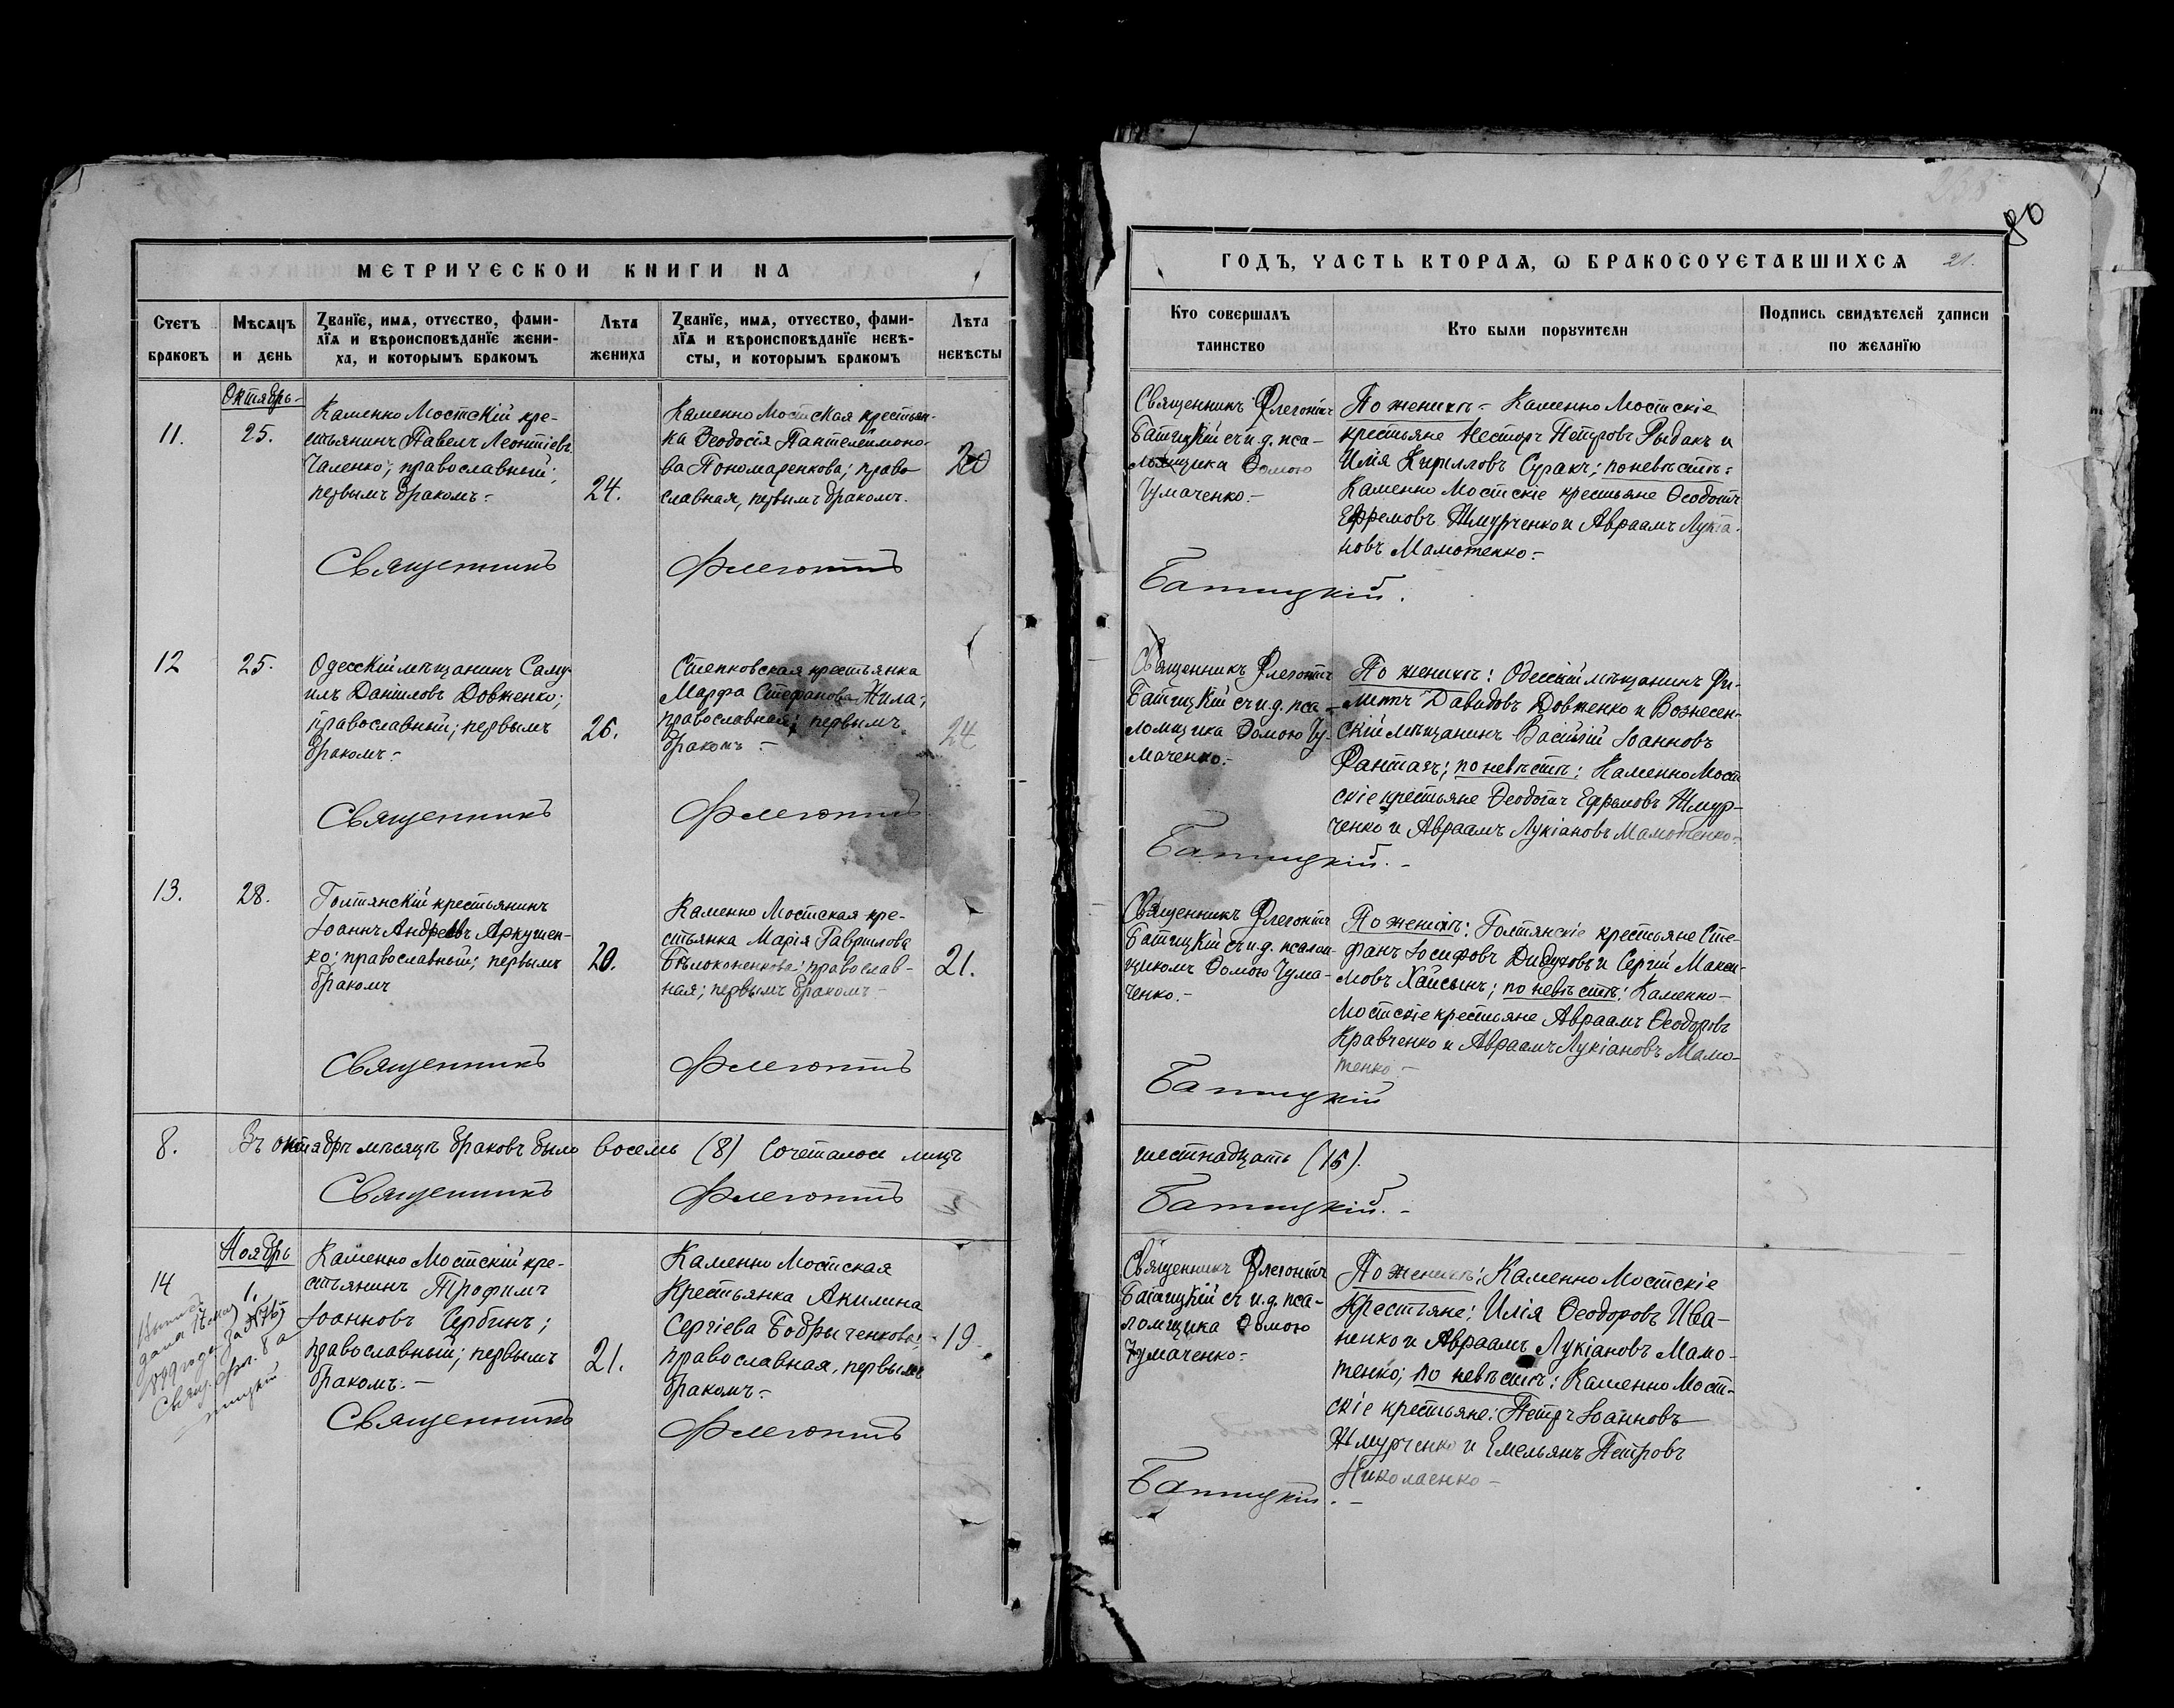 МЕТРИЧЕСКОЙ КНИГИ НА
Счетъ браковъ
Мѣсяцъ и день
Званїе, имѧ, отчество, фами-
лїѧ и вѣроисповѣданїе жени-
ха, и которымъ бракомъ
Лѣта жениха
Званїе, имѧ, отчество, фами-
лїѧ и вѣроисповѣданїе невѣ-
сты, и которымъ бракомъ
Лѣта невѣсты
Октябрь
11.
25.
Каменно Мостскій кре-
стьянинъ Павелъ Леонтіевъ
Чаленко; православный;
первымъ бракомъ:
24.
Каменно Мостская крестьян-
ка Ѳеодосія Пантелеимоно-
ва Пономаренкова; право
славная, первымъ бракомъ.
20
Священникъ
Флегонтъ
12
25.
Одесскій мѣщанинъ Саму-
илъ Даніиловъ Довженко;
православный; первымъ
бракомъ:
26.
Степковская крестьянка
Марфа Стефанова Жила;
православная; первымъ
бракомъ:
24
Священникъ
Флегонтъ
13.
28.
Голтянскій крестьянинъ
Іоаннъ Андреевъ Аркушен-
ко; православный; первымъ
бракомъ
20.
Каменно Мостская кре-
стьянка Марія Гаврилова
Бѣлоконенкова; православ-
ная; первымъ бракомъ-
21.
Священникъ
Флегонтъ
8.
Въ октябрѣ мѣсяцѣ браковъ было восемь (8) Сочеталось лицъ
Священникъ
Флегонтъ
Ноябрь
14
1.
Каменно Мостскій кре-
стьянинъ Трофимъ
Іоанновъ Щербинъ;
православный; первымъ
бракомъ.-
21.
Каменно Мостская
Крестьянка Акилина
Сергіева Бобрыченкова;
православная, первымъ
бракомъ:
19.
1899 года за №76
Священникъ
Флегонтъ
80
ГОДЪ, ЧАСТЬ ВТОРАѦ, Ѡ БРАКОСОЧЕТАВШИХСѦ 21.
Кто совершалъ
таинство
Кто были поручители
Подпись свидѣтелей записи
по желанїю
Священникъ Флегонтъ
Батицкій съ и.д. пса-
ломщика Ѳомою
Чумаченко.-
По женихѣ - Каменно Мостскіе
крестьяне Несторъ Петровъ Рыбакъ и
Илія Кирилловъ Суракъ; по невѣстѣ:
Каменно Мостскіе крестьяне Ѳеодотъ
Ефремовъ Жмурченко и Авраамъ Лукіа-
новъ Мамотенко:
Батицкій.
Священникъ Флегонтъ
Батицкій съ и.д. пса-
ломщика Ѳомою Чу-
маченко.-
По женихѣ: Одесскій мѣщанинъ Фи-
липъ Давидовъ Довженко и Вознесен-
скій мѣщанинъ Василій Іоанновъ
Фантазъ; по невѣстѣ: Каменно Мост
скіе крестьяне Ѳеодотъ Ефремовъ Жмур-
ченко и Авраамъ Лукіановъ Мамотенко-
Батицкій.-
Священникъ Флегонтъ
Батицкій съ и.д. псалом-
щикомъ Ѳомою Чума-
ченко.-
По женихѣ: Голтянскіе крестьяне Сте-
фанъ Іосифовъ Дидуховъ и Сергій Макси-
мовъ Хайсынъ; по невѣстѣ: Каменно-
Мостскіе крестьяне Авраамъ Ѳеодоровъ
Кравченко и Авраамъ Лукіановъ Мамо-
тенко.-
Батицкій
шестнадцать (16).
Батицкій.-
Священникъ Флегонтъ
Батицкій съ и.д. пса-
ломщика Ѳомою
Чумаченко:
По женихѣ: Каменно Мостскіе
Крестьяне: Илія Ѳеодоровъ Ива-
ненко и Авраамъ Лукіановъ Мамо-
тенко; по невѣстѣ: Каменно Мост-
скіе крестьяне: Петръ Іоанновъ
Жмурченко и Емельянъ Петровъ
Николаенко-
Батицкій.-